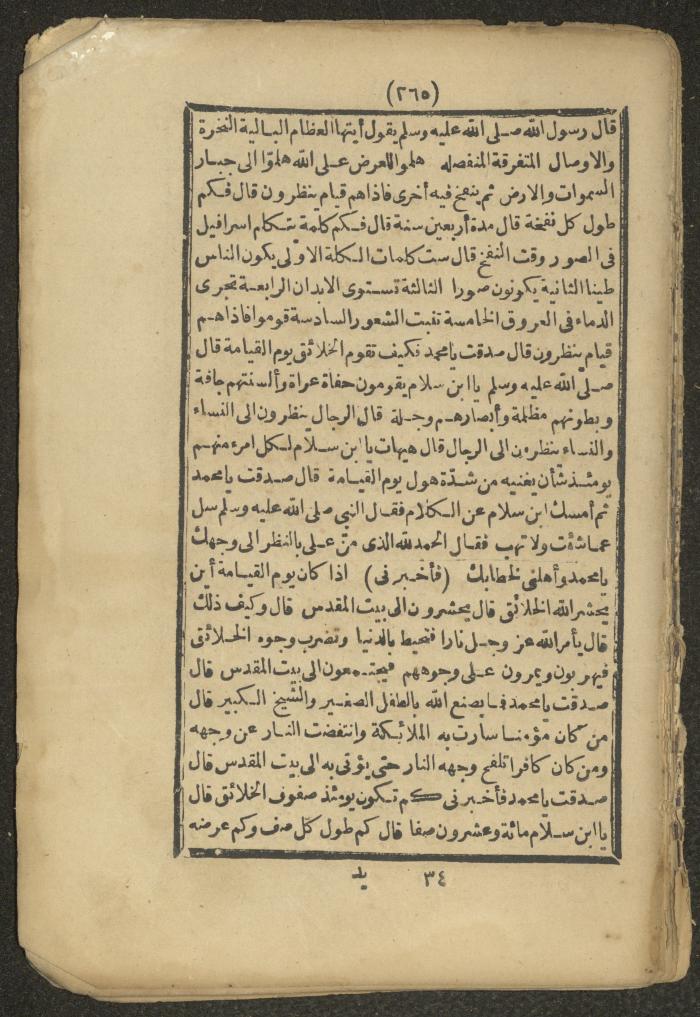 (٢٦٥)
قال رسول الله صلى الله عليه وسلم يقول أيتها العظام البالية النخرة
والاوصال المتفرقة المنفصله هلموا للعرض على الله هلموا الى جبار
السموات والارض ثم ينفخ فيه أخرى فاذا هم قيام ينظرون قال فكم
طول كل نفخة قال مدة أربعين سنة قال فكم كلمة يتكلم اسرافيل
فى الصور وقت النفخ قال ست كلمات الكلمة الاولى يكون الناس
طينا الثانية يكونون صورا الثالثة تستوى الابدان الرابعة تجرى
الدماء فى العروق الخامسة تنبت الشعور السادسة قوموا فاذا هم
قيام ينظرون قال صدقت يا محمد فكيف تقوم الخلائق يوم القيامة قال
صلى الله عليه وسلم يا ابن سلام يقومون حفاة عراة وألسنتهم جافة
وبطونهم مظلمة وأبصارهم وجلة قال الرجال ينظرون الى النساء
والنساء ينظرن الى الرجال قال هيهات يا ابن سلام لكل امرء منهم
يومئذ شأن يغنيه من شدة هول يوم القيامة قال صدقت يا محمد
ثم أمسك ابن سلام عن الكلام فقال النبي صلى الله عليه وسلم سل
عما شئت ولا تهب فقال الحمد لله الذى من على بالنظر الى وجهك
يا محمد وأهلنى لخطابك (فأخبرنى) اذا كان يوم القيامة أين
يحشر الله الخلائق قال يحشرون الى بيت المقدس قال وكيف ذلك
قال يأمر الله عز وجل نارا فتحيط بالدنيا وتضرب وجوه الخلائق
فيهربون ويمرون على وجوههم فيجتمعون الى بيت المقدس قال
صدقت يا محمد فما يصنع الله بالطفل الصغير والشيخ الكبير قال
من كان مؤمنا سارت به الملائكة وانتفضت النار عن وجهه
ومن كان كافرا تلفح وجهه النار حتى يؤتى به الى بيت المقدس قال
صدقت يا محمد فأخبرنى كم تكون يومئذ صفوف الخلائق قال
يا ابن سلام مائة وعشرون صفا قال كم طول كل صف وكم عرضه
٣٤ يد